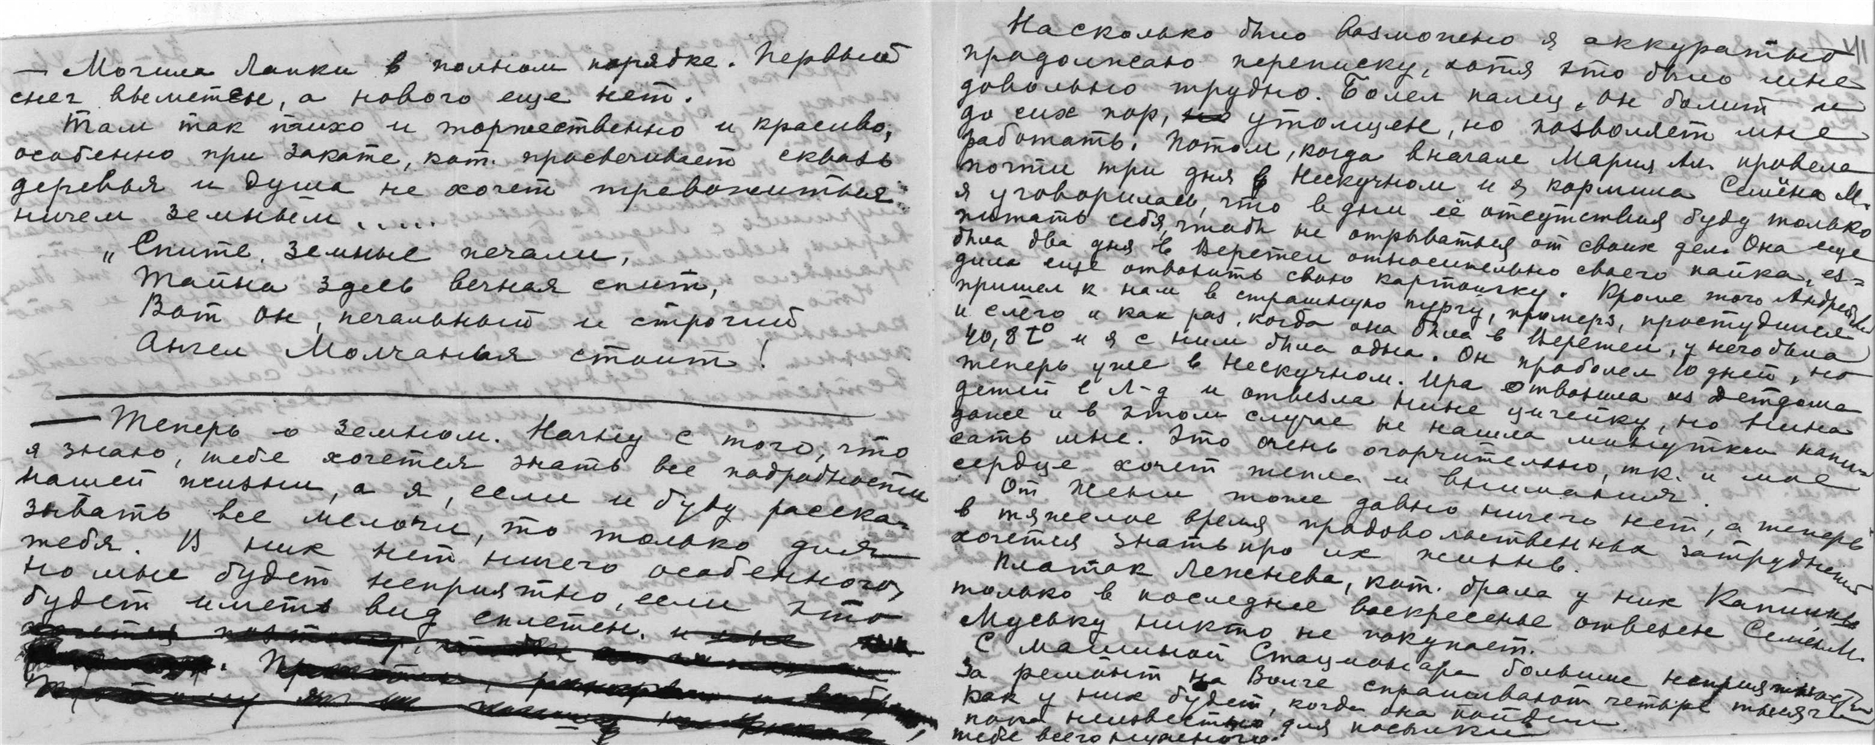 — Могила Лапки в полном порядке. Первый
снег выметен, а нового еще нет.
Там так тихо и торжественно и красиво,
особенно при закате, кот. просвечивает сквозь
деревья и душа не хочет тревожиться
ничем земным.....
„Спите, земные печали,
Тайна здесь вечная спит,
Вот он, печальный и строгий
Ангел Молчанья стоит!
— Теперь о земном. Начну с того, что
я знаю, тебе хочется знать все подробности
нашей жизни, а я, если и буду расска-
зывать все мелочи, то только для
тебя. В них нет ничего особенного,
но мне будет неприятно, если это
будет иметь вид сплетен.
VII
Насколько было возможно я аккуратно
продолжаю переписку, хотя это было мне
довольно трудно. Болел палец, он болит и
до сих пор, утолщен, но позволяет мне
работать. Потом, когда вначале Мария Ал. провела
почти три дня в Нескучном и я кормила Семёна М.
я уговорилась, что в дни её отсутствия буду только
питать себя, чтобы не отрываться от своих дел. Она еще
была два дня в Веретеи относительно своего пайка, ез-
дила еще отвозить свою картошку. Кроме того Андрей
пришел к нам в страшную пургу, промерз, простудился
и слёг и как раз, когда она была в Веретеи, у него была
40,8 t° и я с ним была одна. Он проболел 10 дней, но
теперь уже в Нескучном. Ира отвозила из Детдома
детей в Л-д и отвезла Нине цигейку, но Нина
даже и в этом случае не нашла минутки напи-
сать мне. Это очень огорчительно, т.к. и мое
сердце хочет тепла и внимания.
От Жени тоже давно ничего нет, а теперь
в тяжелое время продовольственных затруднений
хочется знать про их жизнь.
Платок Лежнева, кот. брала у них Капитолина
только в последнее воскресенье отвезен Семён М.
Муську никто не покупает.
С машиной Стационара большие неприятности
За ремонт на Волге спрашивают четыре тысячи
Как у них будет, когда она пойдет
пока неизвестно для посылки
тебе всего нужного.